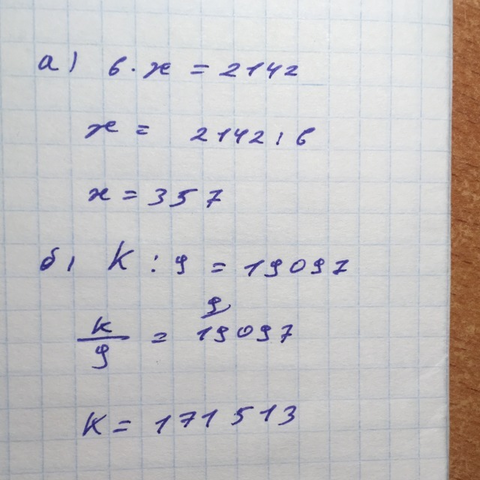 а) 6 · x = 2142
x = 2142 : 6
x = 357
б) K : 9 = 19097
9
K/9 = 19097
K = 171513